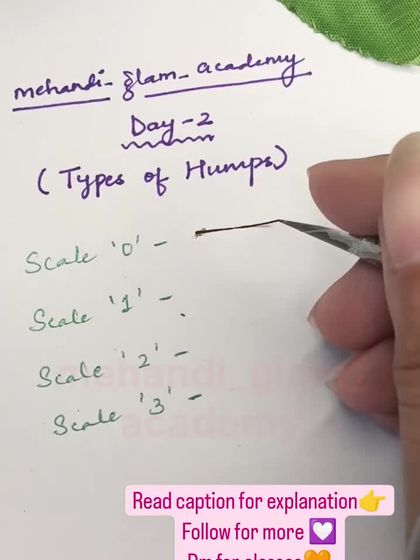 mehandi_glam_academy
Day-2
(Types of Humps)
Scale '0' -
Scale '1' -
Scale '2' -
Scale '3' -
mehandi_glam
academy
Read caption for explanation👉
Follow for more 💟
Dm for classes🧡